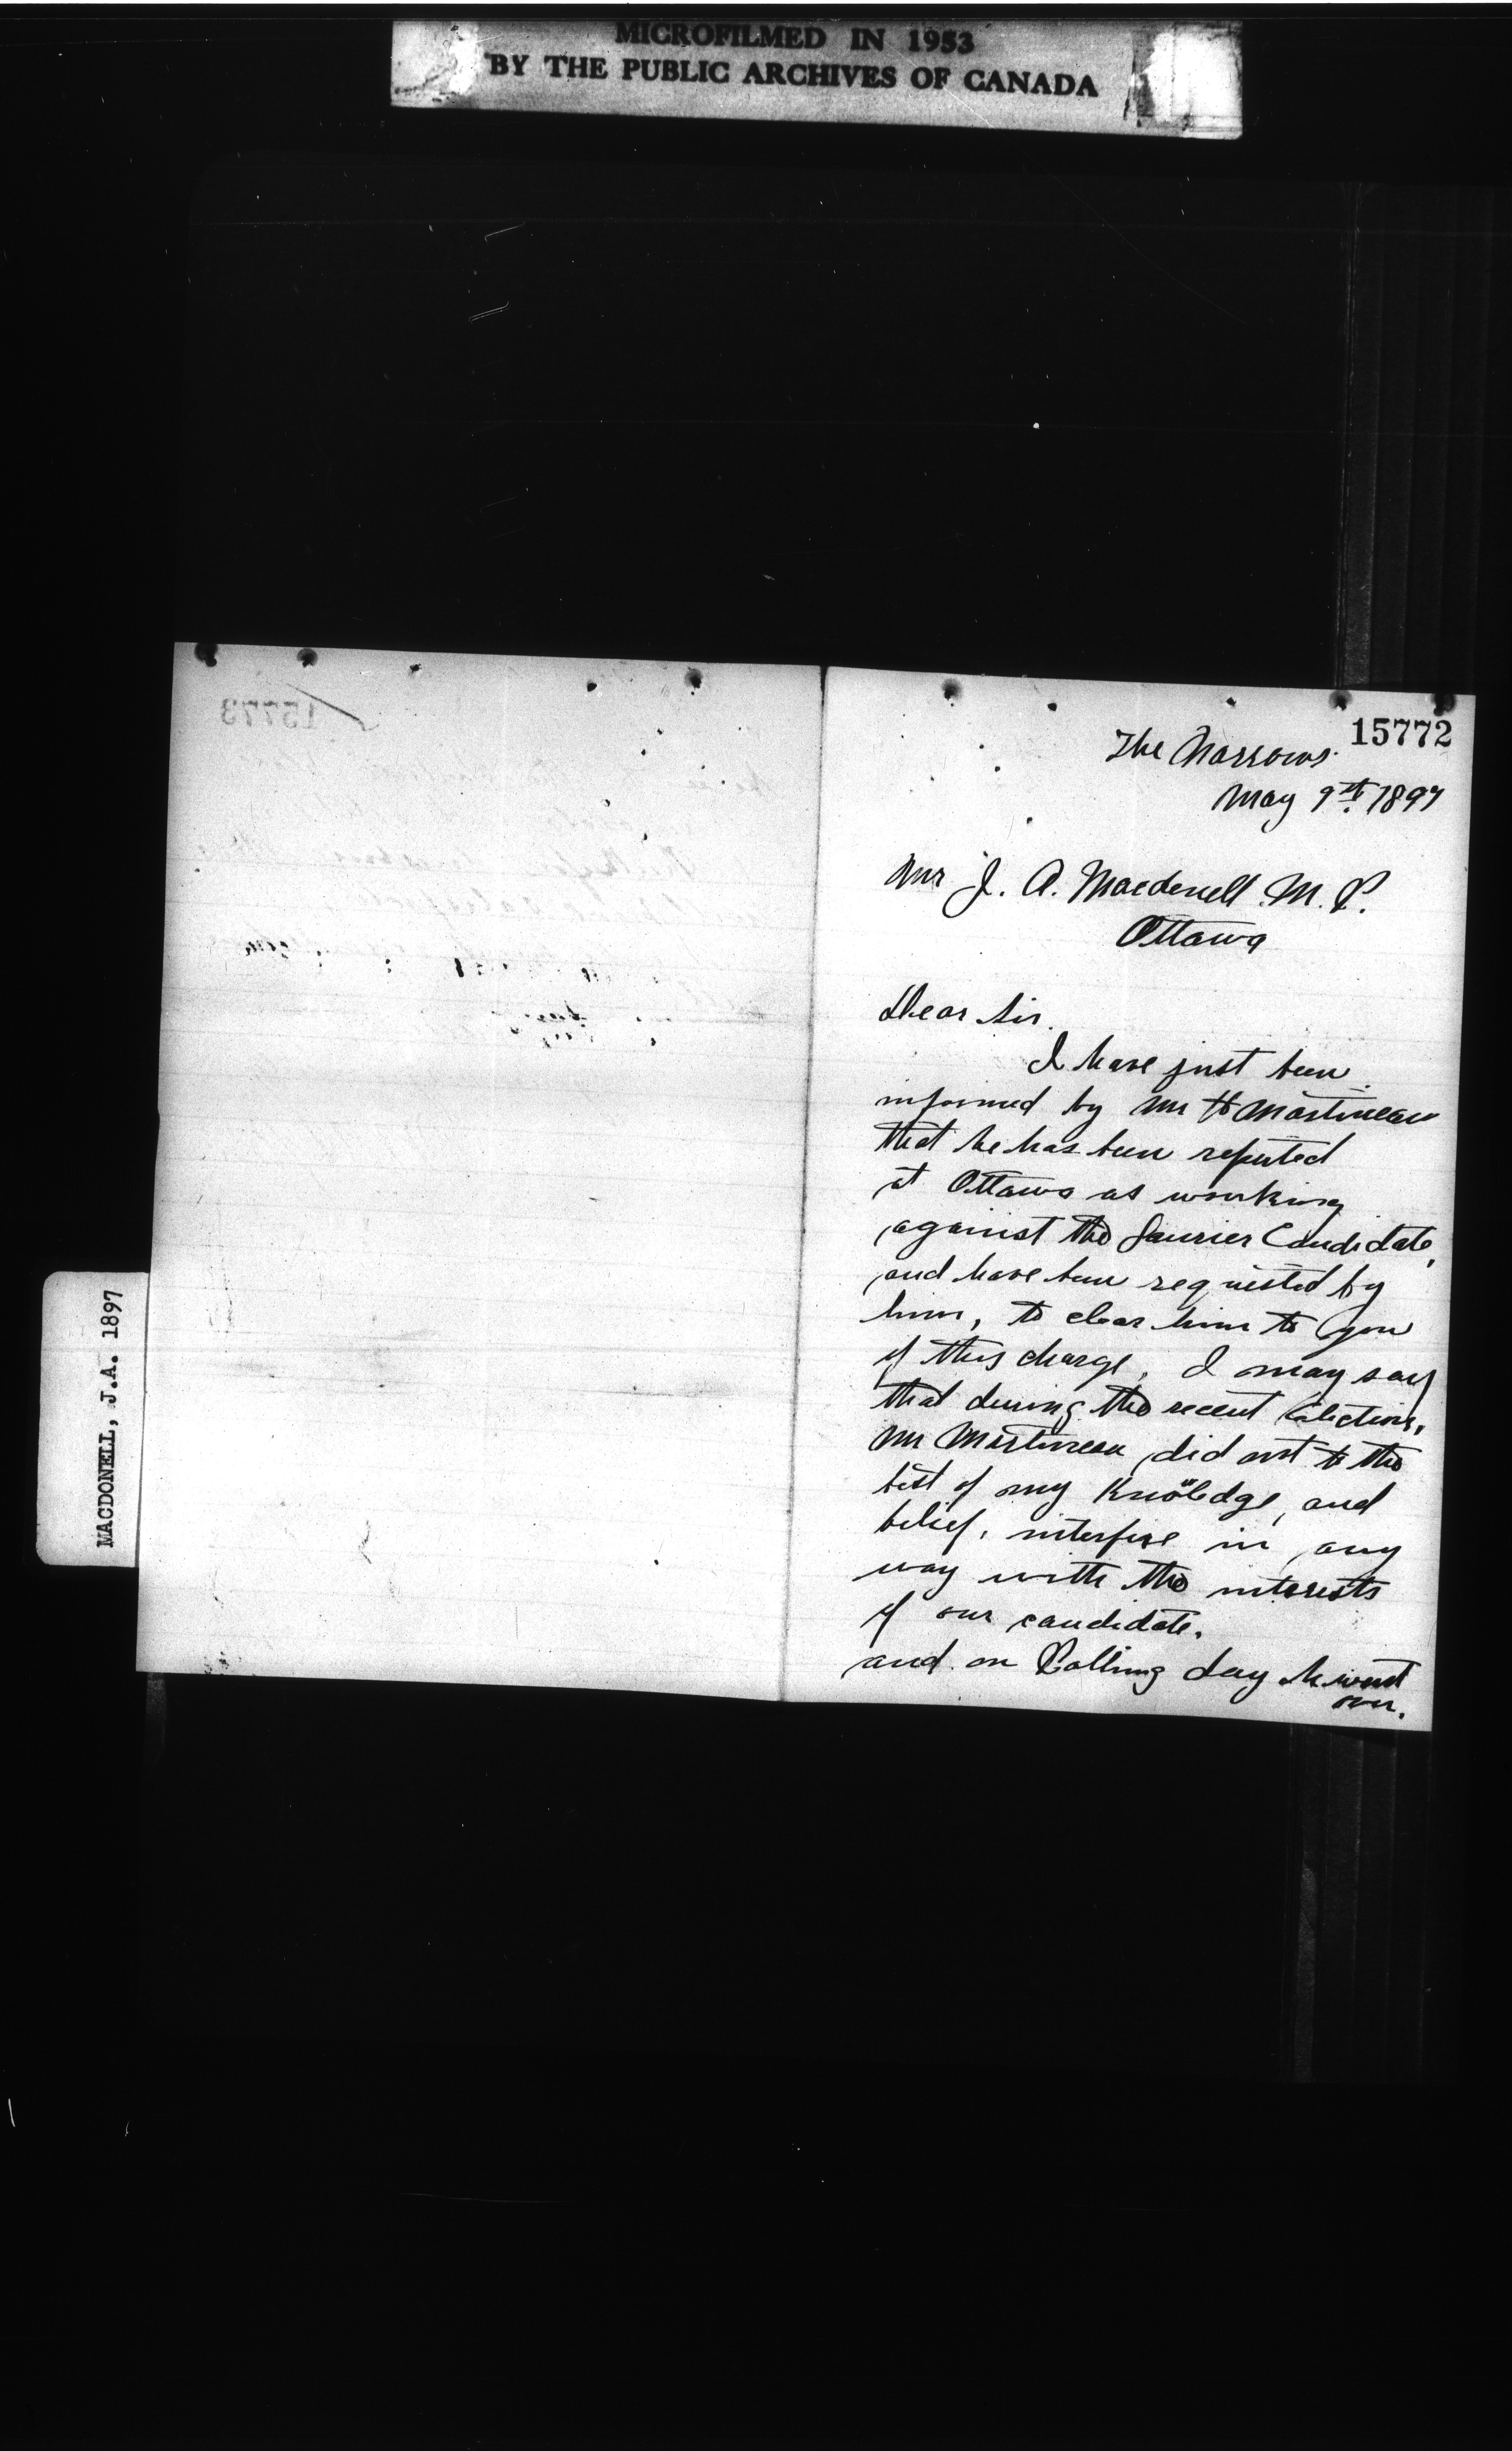 MICROFILMED IN 1953
BY THE PUBLIC ARCHIVES OF CANADA
MACDONELL, J.A. 1897
15773
15772
The Narrows.
May 9th 1897
Mr J. A. Macdonell M. P.
Ottawa
Dear Sir.
I have just been
informed by Mr H Martineau
that he has been reported
at Ottawa as working
against the Laurier Candidate,
and have been requested by
him, to clear him to you
of this charge, I may say
that during the recent Elections,
Mr Martineau did not to the
best of my Knowledge, and
belief, interfere in any
way with the interests
of our candidate.
and on Polling day he went
over.